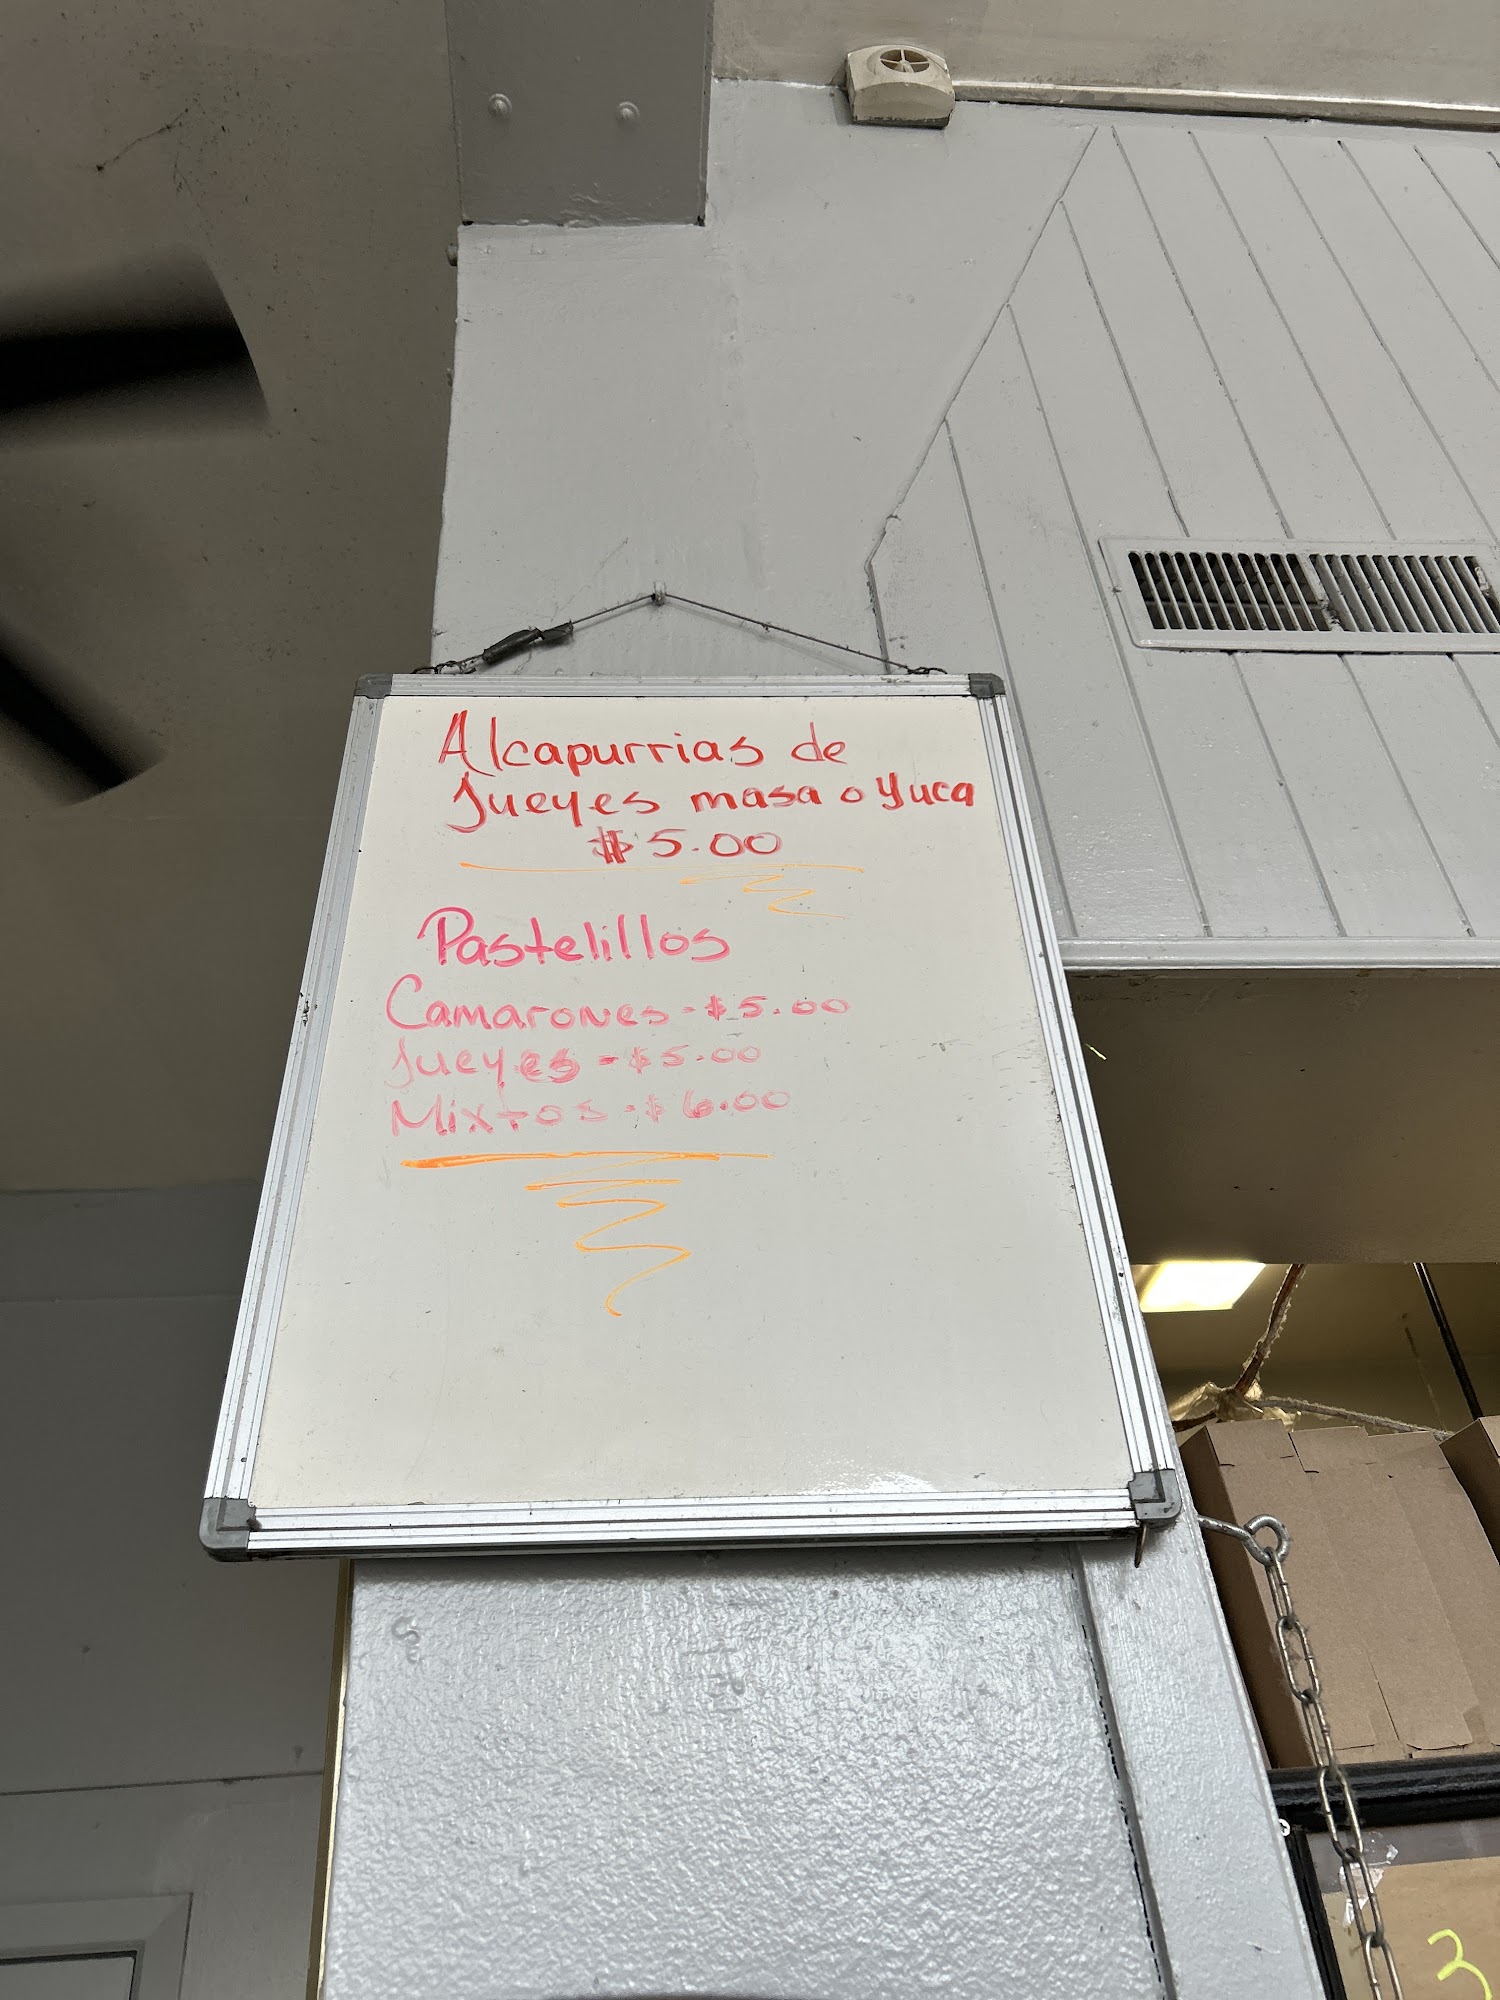 Alcapurrias de
Jueyes masa o Yuca
$5.00
Pastelillos
Camarones - $5.00
Jueyes - $5.00
Mixtos - $6.00
3